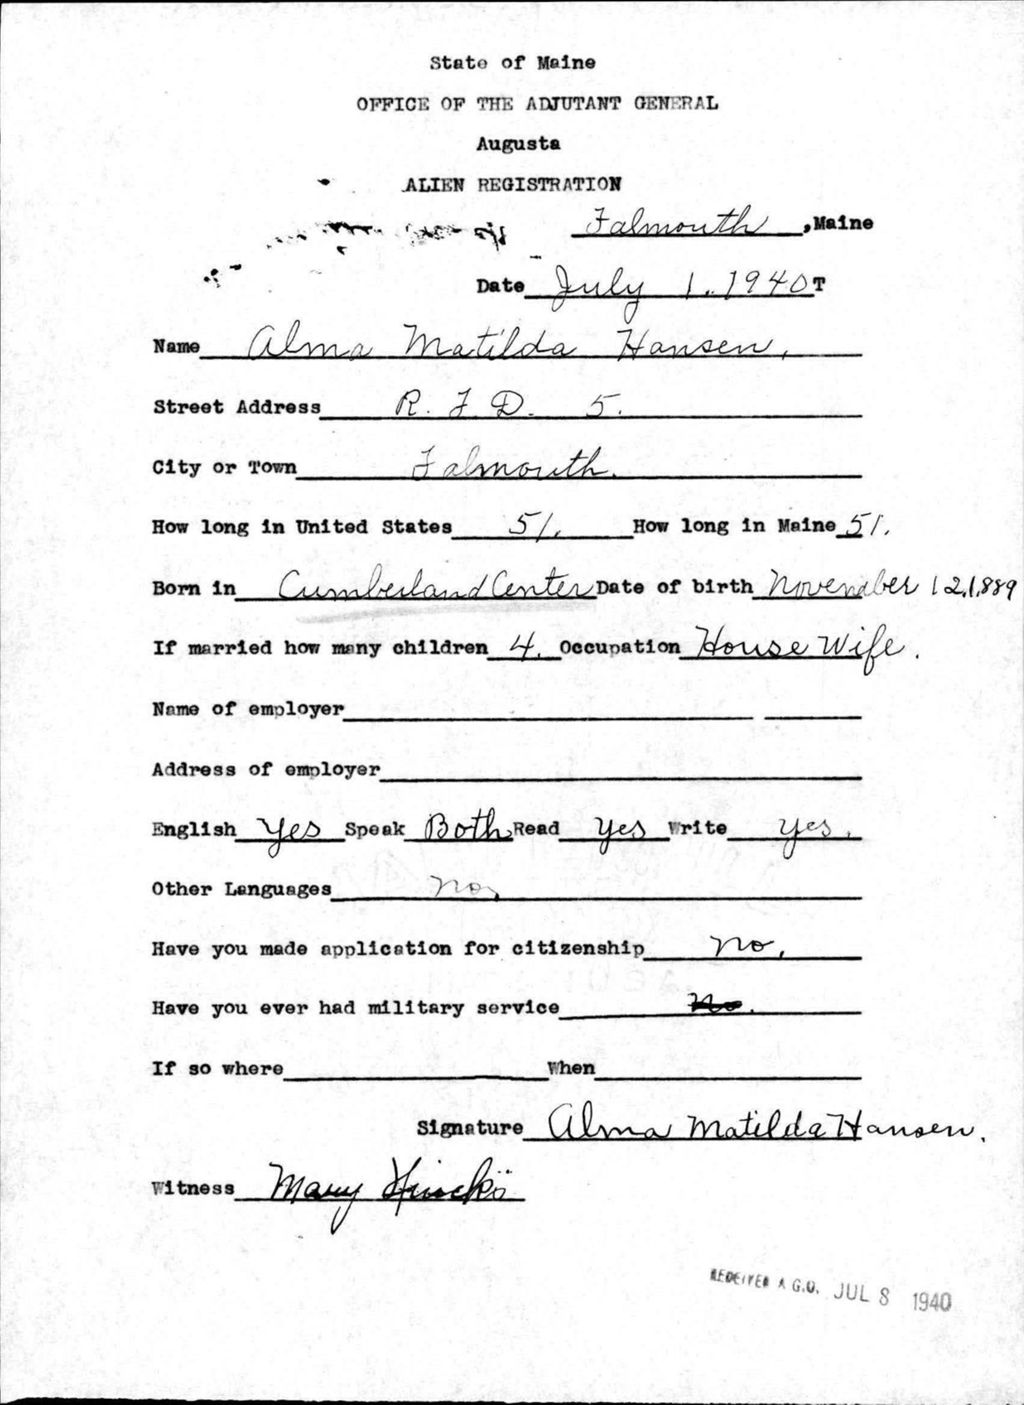 State of Maine
OFFICE OF THE ADJUTANT GENERAL
Augusta
ALIEN REGISTRATION
Falmouth, Maine
Date July 1, 1940 T
Name Alma Matilda Hansen,
Street Address R. F. D. 5.
City or Town Falmouth.
How long in United States 51. How long in Maine 51.
Born in Cumberland Center Date of birth November 12, 1,889
If married how many children 4. Occupation House Wife.
Name of employer
Address of employer
English Yes Speak Both Read yes Write yes.
Other Languages no,
Have you made application for citizenship no,
Have you ever had military service No.
If so where When
Signature Alma Matilda Hansen.
Witness Mary
RECEIVED A.G.O. JUL 8 1940